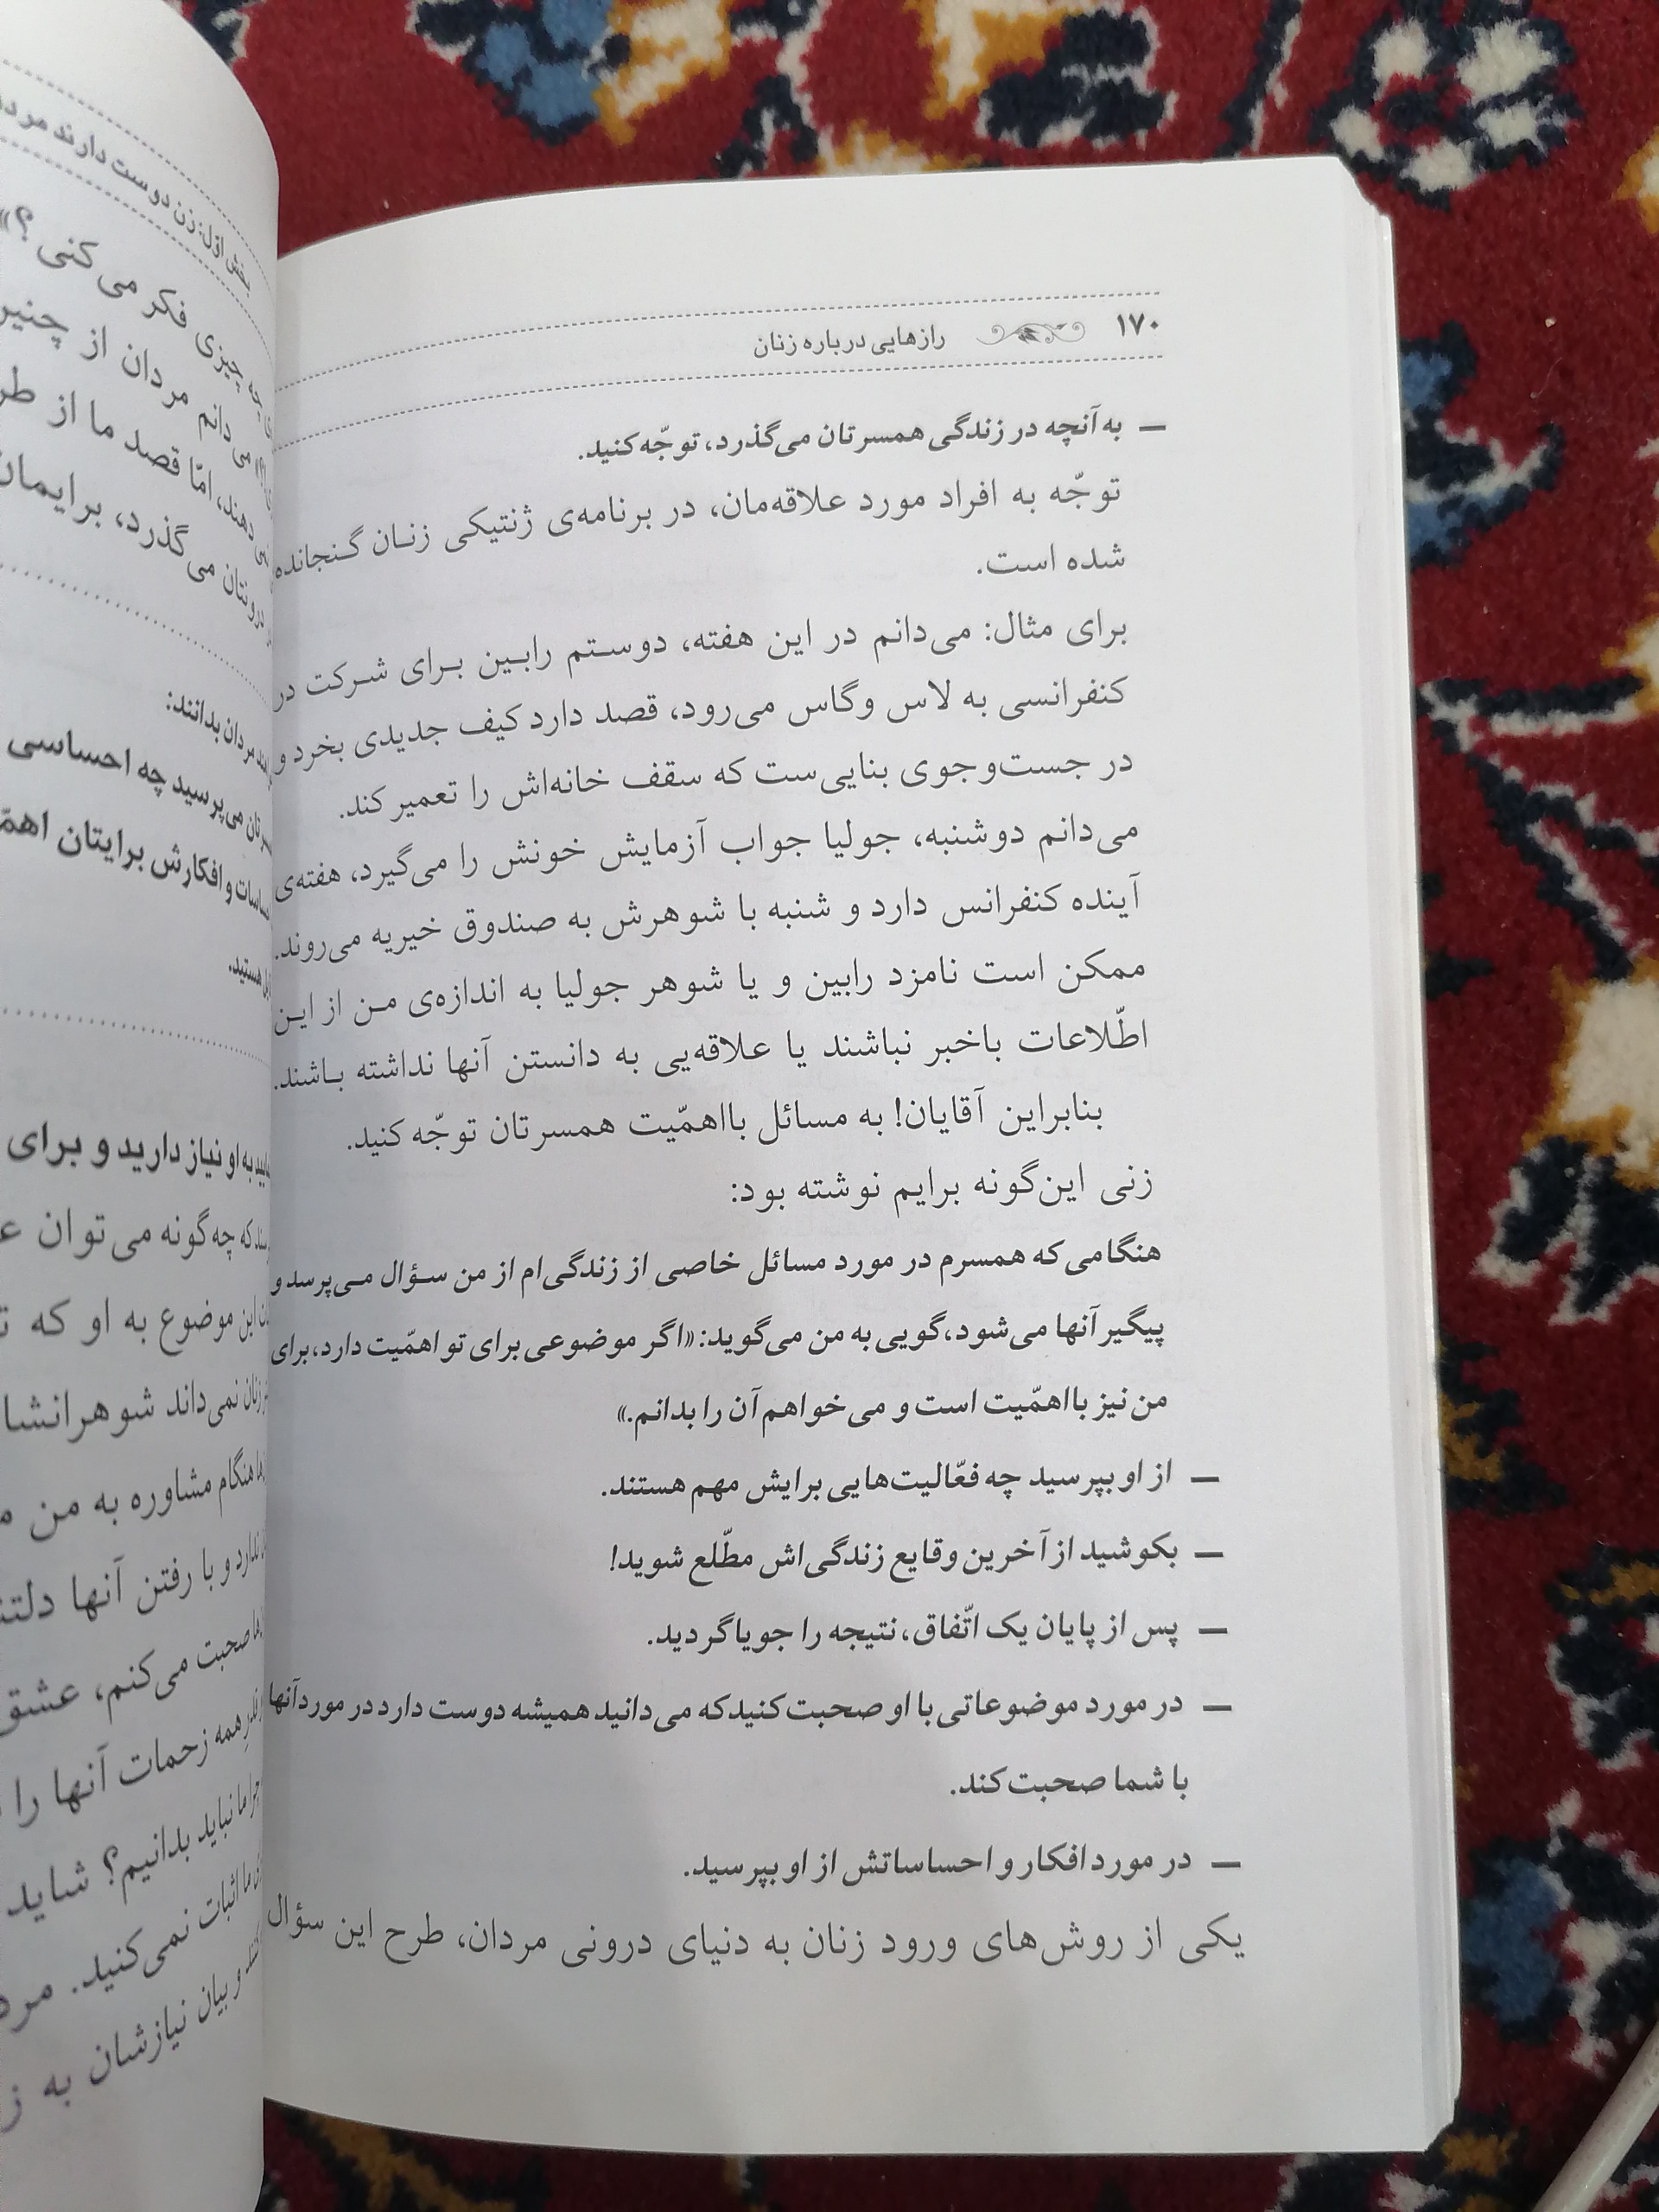 ۱۷۰ رازهایی درباره زنان
— به آنچه در زندگی همسرتان می‌گذرد، توجّه کنید.
توجّه به افراد مورد علاقه‌مان، در برنامه‌ی ژنتیکی زنان گنجانده
شده است.
برای مثال: می‌دانم در این هفته، دوستم رابین برای شرکت در
کنفرانسی به لاس وگاس می‌رود، قصد دارد کیف جدیدی بخرد و
در جست‌وجوی بنایی‌ست که سقف خانه‌اش را تعمیر کند.
می‌دانم دوشنبه، جولیا جواب آزمایش خونش را می‌گیرد، هفته‌ی
آینده کنفرانس دارد و شنبه با شوهرش به صندوق خیریه می‌روند.
ممکن است نامزد رابین و یا شوهر جولیا به اندازه‌ی من از این
اطّلاعات باخبر نباشند یا علاقه‌یی به دانستن آنها نداشته باشند.
بنابراین آقایان! به مسائل بااهمّیت همسرتان توجّه کنید.
زنی این‌گونه برایم نوشته بود:
هنگامی‌که همسرم در مورد مسائل خاصی از زندگی‌ام از من سؤال می‌پرسد و
پیگیر آنها می‌شود، گویی به من می‌گوید: «اگر موضوعی برای تو اهمّیت دارد، برای
من نیز بااهمّیت است و می‌خواهم آن را بدانم.»
— از او بپرسید چه فعّالیت‌هایی برایش مهم هستند.
— بکوشید از آخرین وقایع زندگی‌اش مطّلع شوید!
— پس از پایان یک اتّفاق، نتیجه را جویا گردید.
— در مورد موضوعاتی با او صحبت کنید که می‌دانید همیشه دوست دارد در مورد آنها
با شما صحبت کند.
— در مورد افکار و احساساتش از او بپرسید.
یکی از روش‌های ورود زنان به دنیای درونی مردان، طرح این سؤال
بخش اوّل: زن دوست دارند
چه چیزی فکر می‌کنی؟»
می‌دانم مردان از
دهند، امّا قصد ما از
درونتان می‌گذرد، برایمان
مردان بدانند:
می‌پرسید چه احساسی
و افکارش برایتان
هستید.
به او نیاز دارید و برای
که چه‌گونه می‌توان
این موضوع به او که
زنان نمی‌داند شوهرانشا
هنگام مشاوره به من
ندارد و با رفتن آنها
صحبت می‌کنم، عشق
همه زحمات آنها را
چرا ما نباید بدانیم؟ شاید
ما اثبات نمی‌کنید.
و بیان نیازشان به